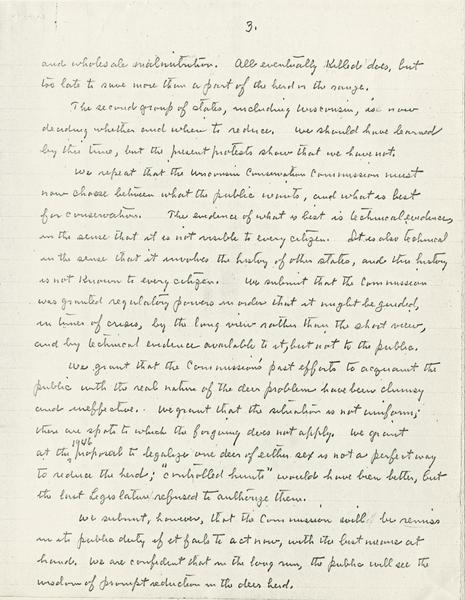 3.
and wholesale malnutrition. All eventually killed does, but
too late to save more than a part of the herd or the range.
The second group of states, including Wisconsin, is now
deciding whether and when to reduce. We should have learned
by this time, but the present protests show that we have not.
We repeat that the Wisconsin Conservation Commission must
now choose between what the public wants, and what is best
for conservation. The evidence of what is best is technical evidence
in the sense that it is not visible to every citizen. It is also technical
in the sense that it involves the history of other states, and this history
is not known to every citizen. We submit that the Commission
was granted regulatory powers in order that it might be guided,
in times of crisis, by the long view rather than the short view,
and by technical evidence available to it, but not to the public.
We grant that the Commission's past efforts to acquaint the
public with the real nature of the deer problem have been clumsy
and ineffective. We grant that the situation is not uniform;
there are spots to which the forgoing does not apply. We grant
1946
at the proposal to legalize one deer of either sex is not a perfect way
to reduce the herd; "controlled hunts" would have been better, but
the last Legislature refused to authorize them.
We submit, however, that the Commission will be remiss
in its public duty if it fails to act now, with the best means at
hand. We are confident that in the long run, the public will see the
wisdom of prompt reduction in the deer herd.